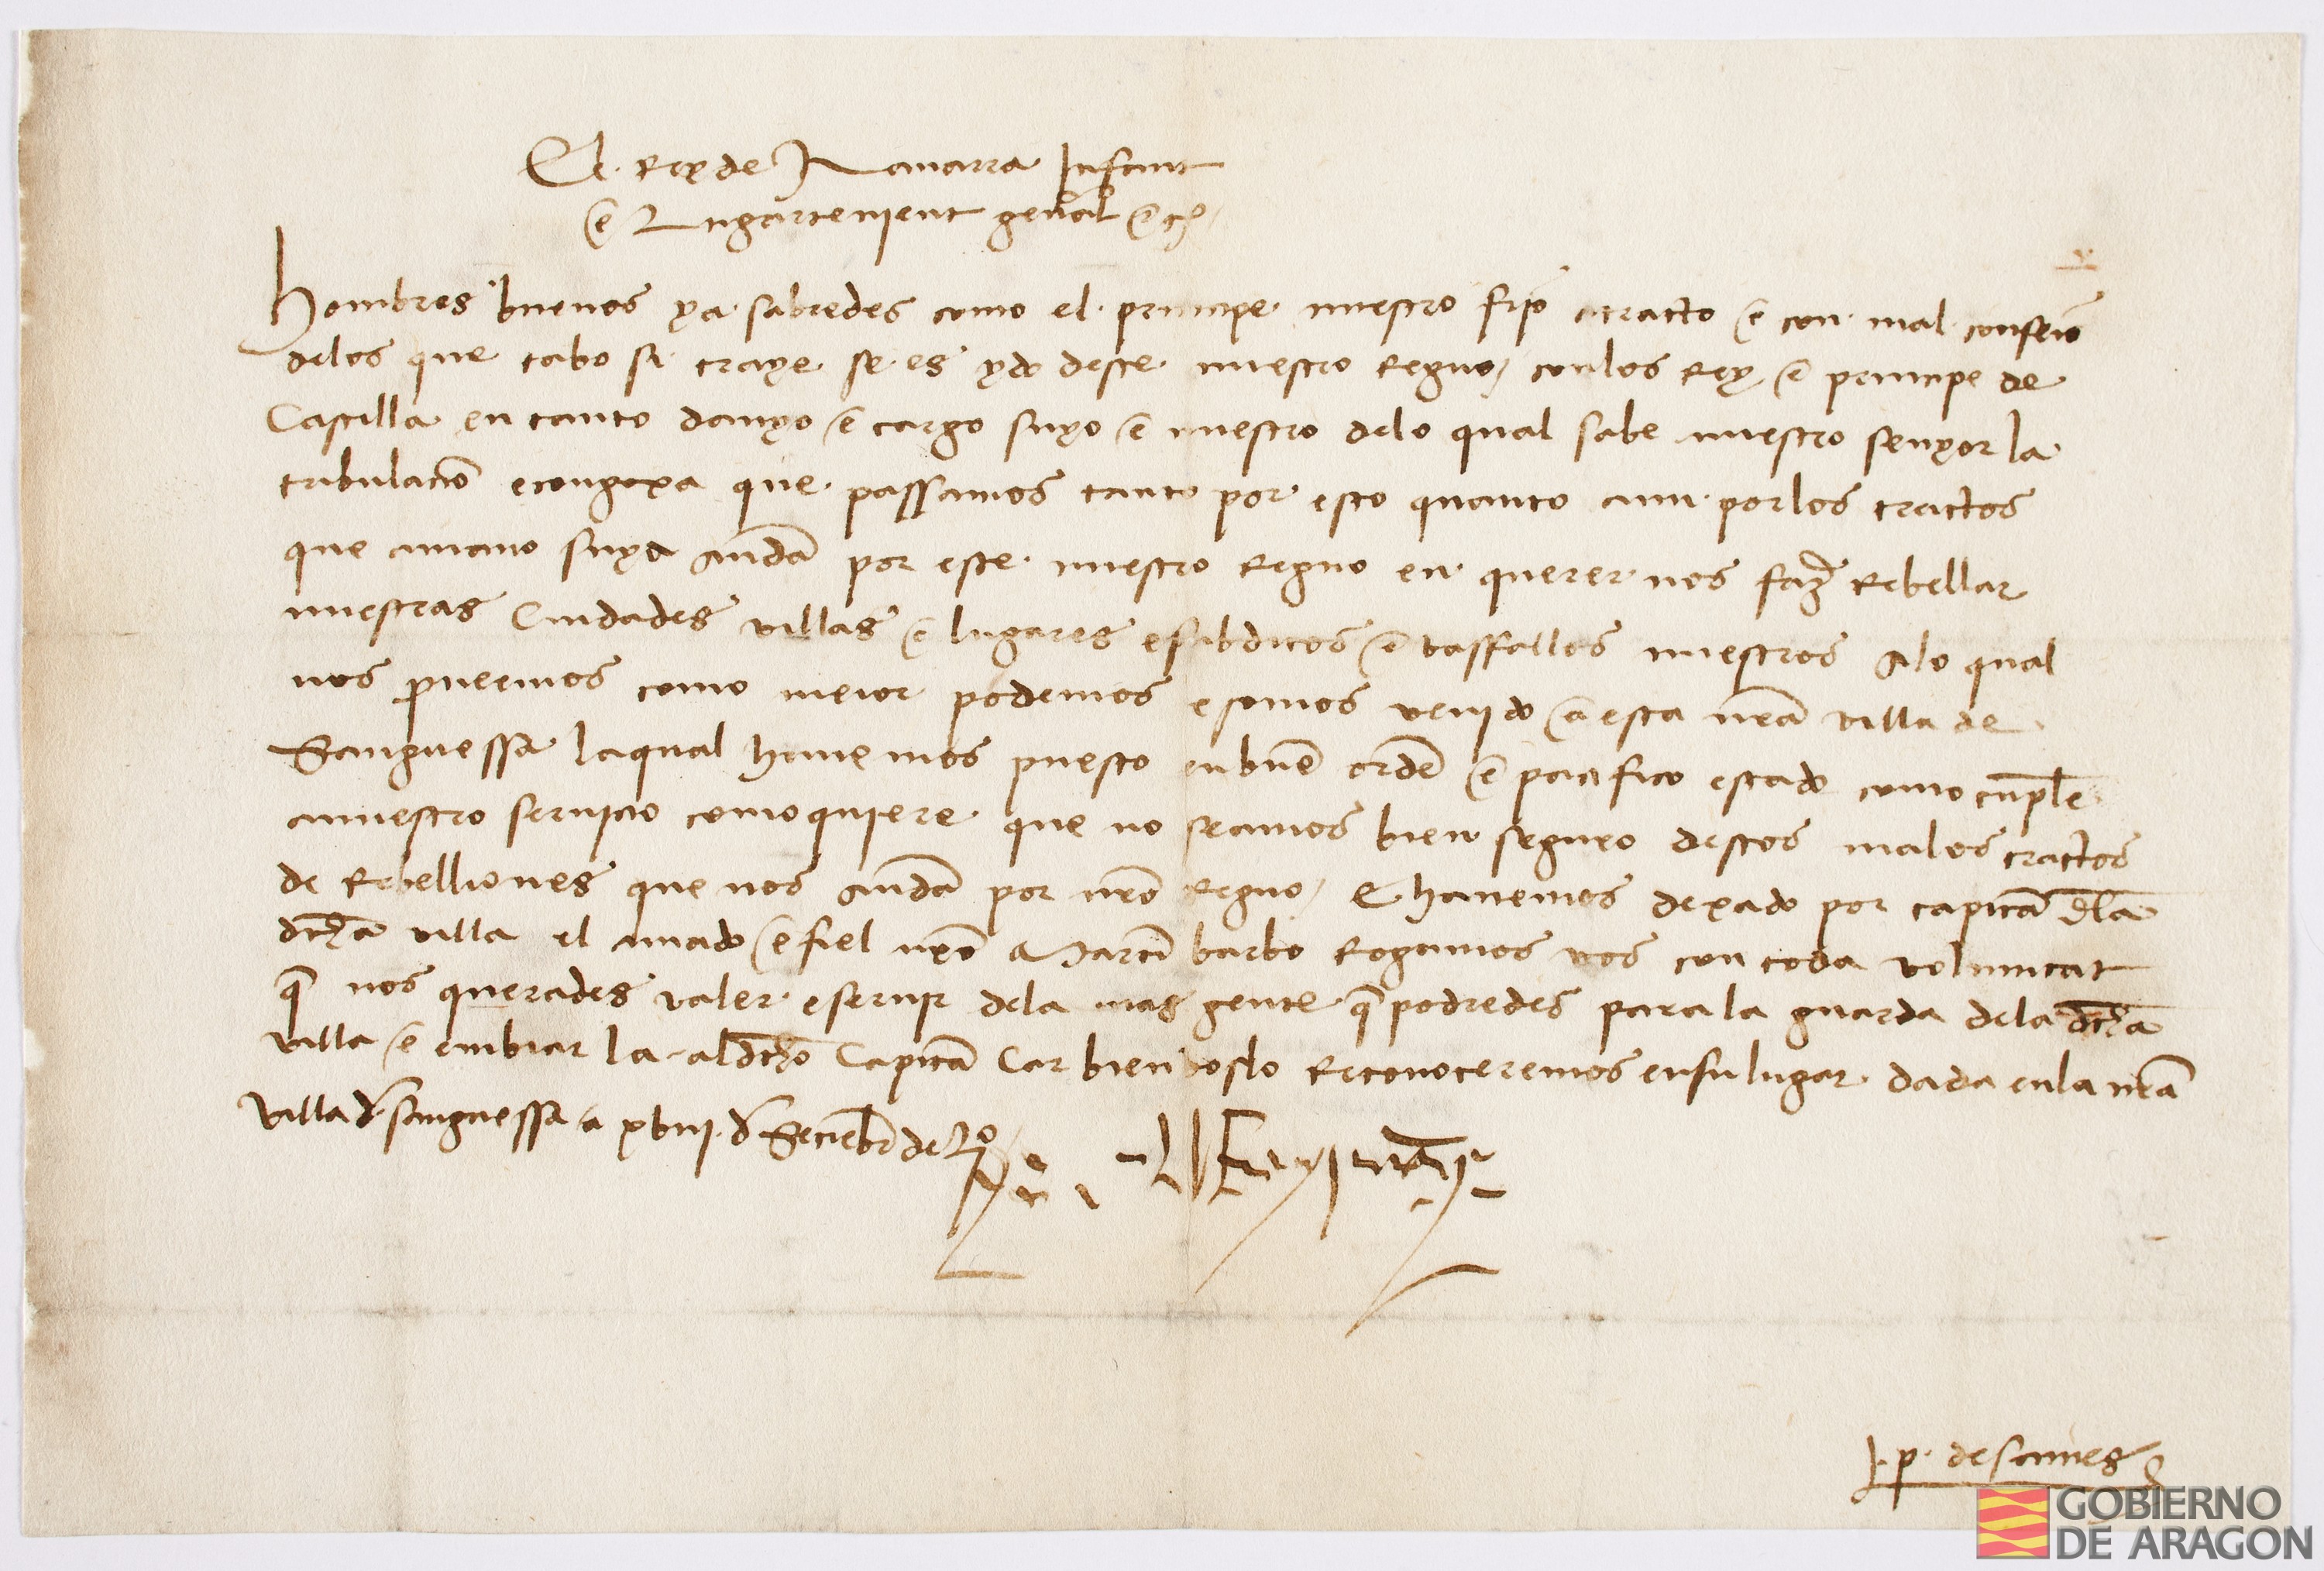 El Rey de Nauarra Infant
e Lugartenient gen̄al etc̃
Hombres buenos ya sabredes como el principe nuestro fijo a tracto e con mal conseio
delos que cabo si traye se es ydo deste nuestro Regno / conlos Rey e principe de
Castilla en tanto danyo e cargo suyo e nuestro delo qual sabe nuestro senyor la
tribulacio̅ e congoxa que passamos tanto por esto quanto aun porlos tractos
que amano suya anda̅ por este nuestro Regno en querer nos faz̃ Rebellar
nuestras Ciudades villas e lugares e subditos e vassallos nuestros Alo qual
nos p̱ueemos como meior podemos e somos venido a esta nr̃a villa de
Sanguessa laqual hauemos puesto en bue̅ orde̅ e pacifico estado como cu̅ple
anuestro seruicio comoquiere que no seamos bien seguro destos malos tractos
de Rebelliones que nos anda̅ por nr̃o Regno / E hauemos dexado por capita̅ dl̃a
dich̃a villa el amado e fiel nr̃o Martĩ barbo Rogamos vos con toda voluntat
q̃ nos querades valer e seruir dela mas gente q̃ podredes para la guarda dela dch̃a
villa e embiar la al dch̃o Capita̅ Car bien vos lo Reconoceremos en su lugar dada en la nr̃a
villa d̃ sanguessa a xviij d̃ Setie̅bre de Lº
Rey
J. p. de sames
GOBIERNO
DE ARAGON